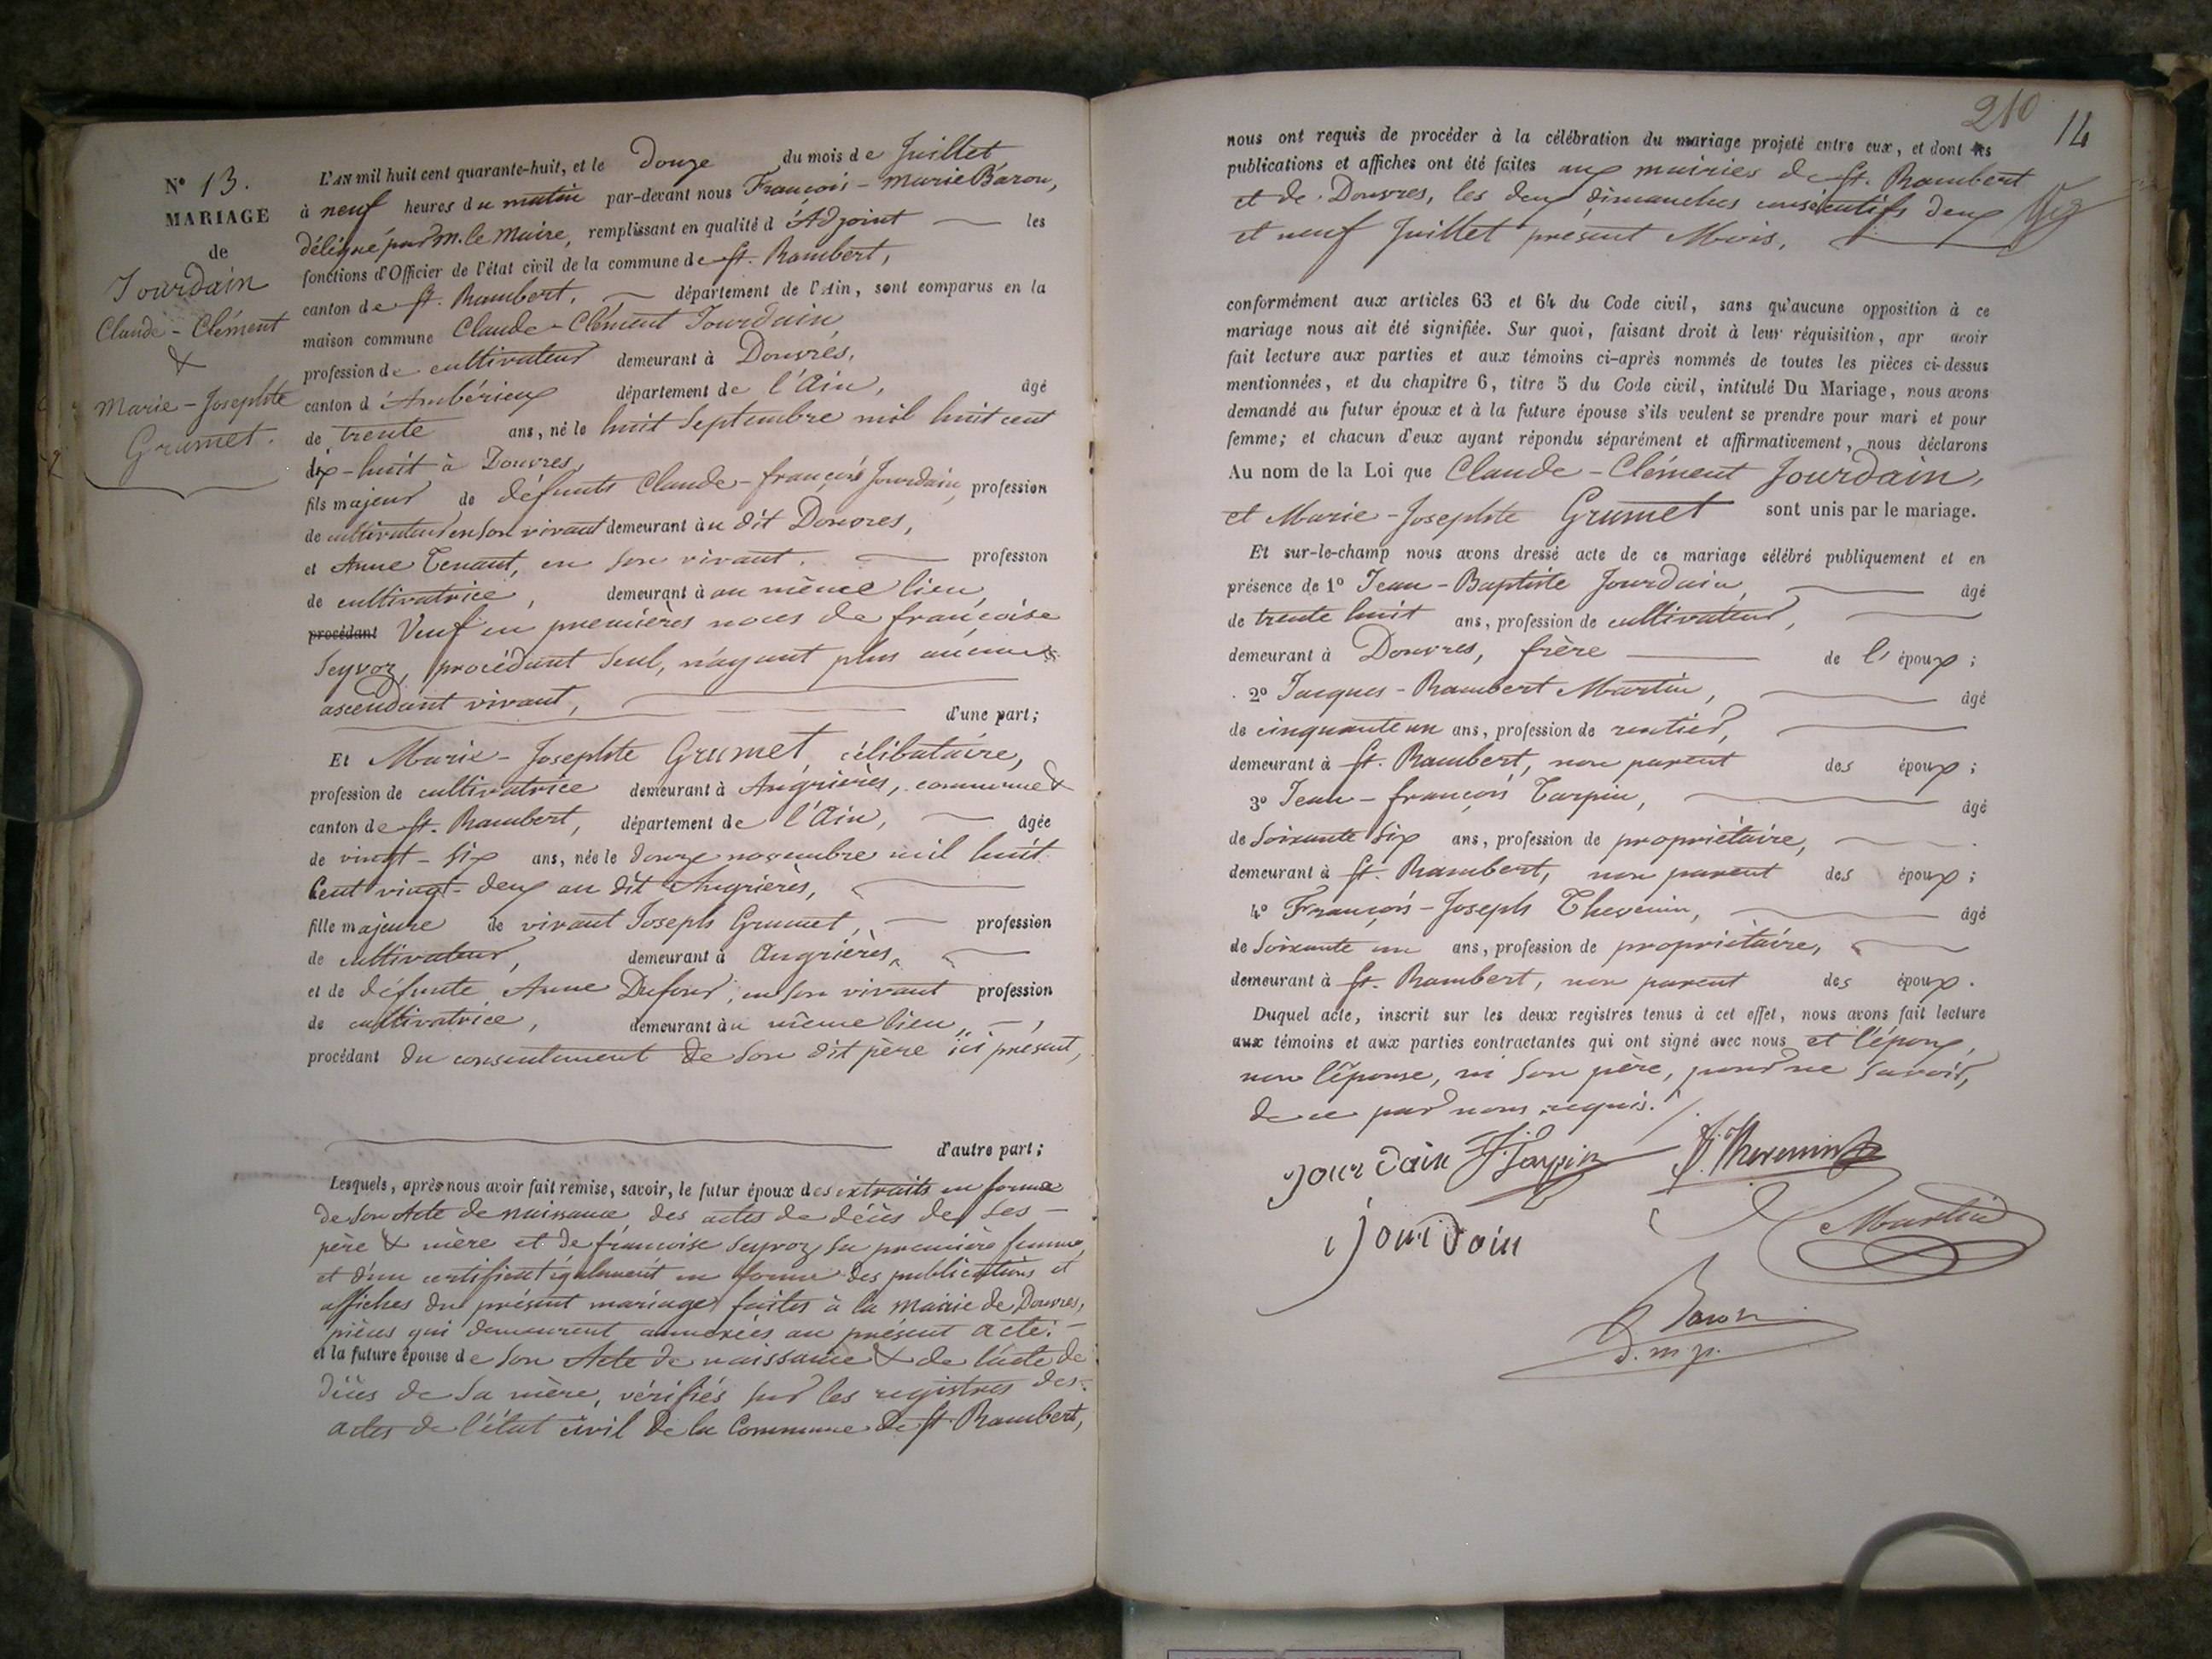 N° 13.
MARIAGE
de
Jourdain
Claude - Clément
&
Marie - Josephte
Grumet.
L'AN mil huit cent quarante-huit, et le douze du mois de Juillet
à neuf heures du matin par-devant nous François - Marie Baron,
délégué par M. le Maire, remplissant en qualité d'Adjoint les
fonctions d'Officier de l'état civil de la commune de St. Rambert,
canton de St. Rambert, département de l'Ain, sont comparus en la
maison commune Claude - Clément Jourdain,
profession de cultivateur demeurant à Douvres,
canton d'Ambérieux département de l'Ain, âgé
de trente ans, né le huit Septembre mil huit cent
dix-huit à Douvres,
fils majeur de défunts Claude - françois Jourdain, profession
de cultivateur en son vivant demeurant au dit Douvres,
et Anne Tenaut, en son vivant. profession
de cultivatrice, demeurant à au même lieu,
procédant Veuf en premières noces de françoise
Seyvoz, procédant seul, n'ayant plus aucuns
ascendant vivant,
d'une part;
Et Marie - Josephte Grumet, célibataire,
profession de cultivatrice demeurant à Angrières, commune &
canton de St. Rambert, département de l'Ain, âgée
de vingt - six ans, née le douze novembre mil huit
Cent vingt - deux au dit Angrières,
fille majeure de vivant Joseph Grumet, profession
de cultivateur, demeurant à Angrières,
et de défunte Anne Dufour, en son vivant profession
de cultivatrice, demeurant au même lieu,
procédant du consentement de son dit père ici présent,
d'autre part;
Lesquels, après nous avoir fait remise, savoir, le futur époux des extraits en forme
de son Acte de naissance, des actes de décès de ses
père & mère et de françoise Seyvoz sa première femme,
et d'un certificat également en forme des publications et
affiches du présent mariage faites à la Mairie de Douvres,
pièces qui demeurent annexées au présent acte;
et la future épouse de son Acte de naissance & de l'acte de
décès de sa mère, vérifiés sur les registres des
actes de l'état civil de la Commune de St Rambert,
210
14
nous ont requis de procéder à la célébration du mariage projeté entre eux, et dont les
publications et affiches ont été faites aux mairies de St. Rambert
et de Douvres, les deux dimanches consécutifs deux
et neuf Juillet présent Mois.
conformément aux articles 63 et 64 du Code civil, sans qu'aucune opposition à ce
mariage nous ait été signifiée. Sur quoi, faisant droit à leur réquisition, apr avoir
fait lecture aux parties et aux témoins ci-après nommés de toutes les pièces ci-dessus
mentionnées, et du chapitre 6, titre 5 du Code civil, intitulé Du Mariage, nous avons
demandé au futur époux et à la future épouse s'ils veulent se prendre pour mari et pour
femme; et chacun d'eux ayant répondu séparément et affirmativement, nous déclarons
Au nom de la Loi que Claude - Clément Jourdain,
et Marie - Josephte Grumet sont unis par le mariage.
Et sur-le-champ nous avons dressé acte de ce mariage célébré publiquement et en
présence de 1° Jean - Baptiste Jourdain, âgé
de trente huit ans, profession de cultivateur,
demeurant à Douvres, frère de l'époux;
2° Jacques - Rambert Martin, âgé
de cinquante un ans, profession de rentier,
demeurant à St. Rambert, non parent des époux;
3° Jean - françois Tarpin, âgé
de soixante six ans, profession de propriétaire,
demeurant à St. Rambert, non parent des époux;
4° François - Joseph Thevenin, âgé
de soixante un ans, profession de propriétaire,
demeurant à St. Rambert, non parent des époux.
Duquel acte, inscrit sur les deux registres tenus à cet effet, nous avons fait lecture
aux témoins et aux parties contractantes qui ont signé avec nous et l'époux,
non l'épouse, ni son père, pour ne savoir,
de ce par nous requis.
Jourdain Tarpin Thevenin
jourdain Martin
Baron
d. m. p.